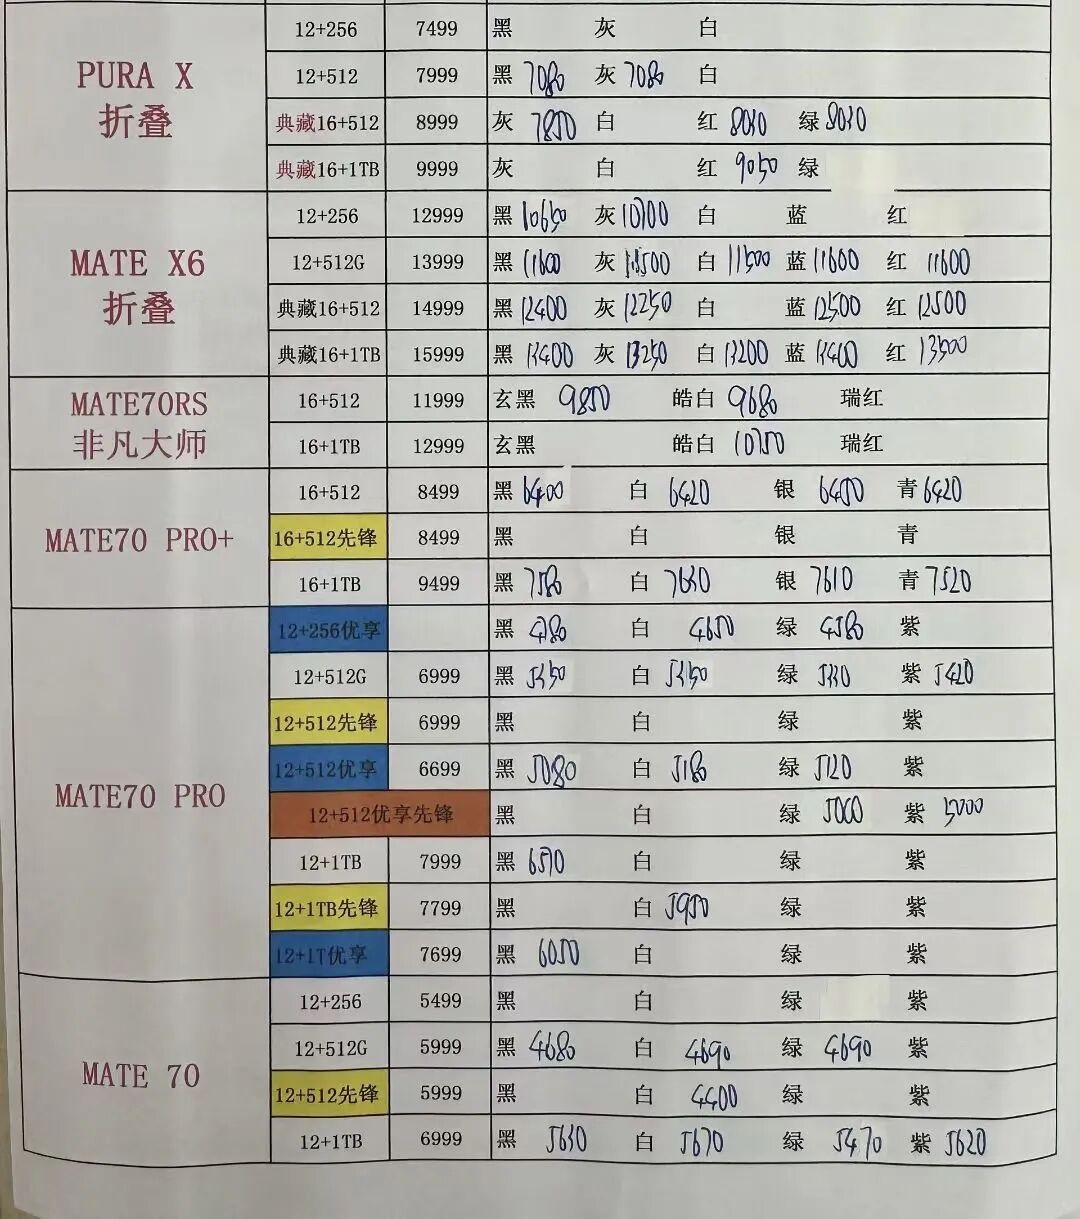 12+256 7499 黑 灰 白
PURA X
折叠
12+512 7999 黑 7080 灰 7080 白
典藏16+512 8999 灰 7850 白 红 8030 绿 8030
典藏16+1TB 9999 灰 白 红 9050 绿
MATE X6
折叠
12+256 12999 黑 10650 灰 10700 白 蓝 红
12+512G 13999 黑 11600 灰 11500 白 11500 蓝 11600 红 11600
典藏16+512 14999 黑 12400 灰 12250 白 蓝 12500 红 12500
典藏16+1TB 15999 黑 13400 灰 13250 白 13200 蓝 13400 红 13500
MATE70RS
非凡大师
16+512 11999 玄黑 9850 皓白 9680 瑞红
16+1TB 12999 玄黑 皓白 10750 瑞红
MATE70 PRO+
16+512 8499 黑 6400 白 6420 银 6450 青 6420
16+512先锋 8499 黑 白 银 青
16+1TB 9499 黑 7580 白 银 7610 青 7520
MATE70 PRO
12+256优享 黑 白 4650 绿 4580 紫
12+512G 6999 黑 白 绿 紫 5420
12+512先锋 6999 黑 白 绿 紫
12+512优享 6699 黑 5080 白 5180 绿 5120 紫
12+512优享先锋 黑 白 绿 5000 紫 5000
12+1TB 7999 黑 白 绿 紫
12+1TB先锋 7799 黑 白 5950 绿 紫
12+1T优享 7699 黑 6050 白 绿 紫
MATE 70
12+256 5499 黑 白 绿 紫
12+512G 5999 黑 4680 白 4690 绿 4690 紫
12+512先锋 5999 黑 白 4400 绿 紫
12+1TB 6999 黑 5630 白 5670 绿 5470 紫 5620